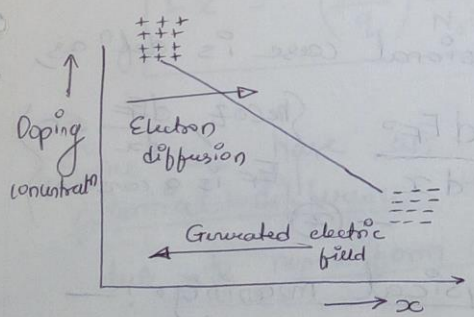 + + + +
+ + + +
+ + + +
Doping
concentratn
Electron
diffusion
- - - -
- - - -
- - - -
- - - -
Generated electric
field
x